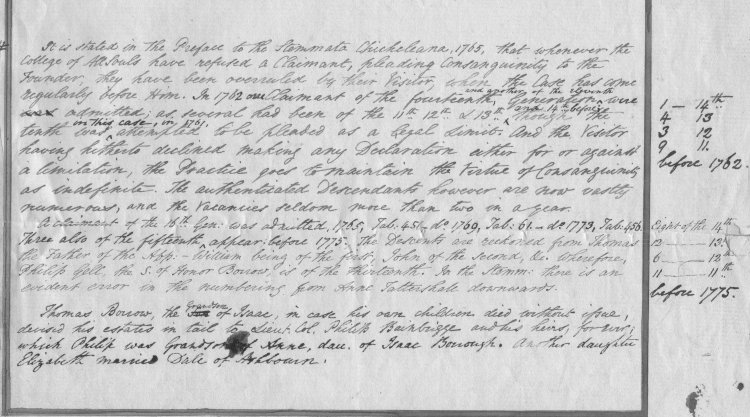 It is stated in the Preface to the Stemmata Chicheleana, 1765, that whenever the
College of All Souls have refused a Claimant, pleading Consanguinity to the
Founder, they have been overruled by their Visitor, when the Case has come
regularly before Him. In 1762 one Claimant of the fourteenth, and another of the eleventh Generation were
admitted; as several had been of the 11th 12th & 13th and 14th before Though the
tenth was in this case in 1761. attempted to be pleaded as a Legal limit. And the Visitor
having hitherto declined making any Declaration either for or against
a limitation, the Practice goes to maintain the Virtue of Consanguinity
as indefinite. The authenticated Descendants however are now vastly
numerous, and the Vacancies seldom more than two in a year.
A claimant of the 16th Gen: was admitted, 1765, Tab: 451 - do 1769, Tab: 61. - do 1773, Tab: 456.
Three also of the fifteenth appear: before 1775. The Descents are reckoned from Thomas
the Father of the Abp: - William being of the first, John of the second, &c. Wherefore,
Philip Gell, the S. of Honor Borrow, is of the thirteenth. In the Stemm: there is an
evident error in the numbering from Anne Tattershale downwards.
Thomas Borow, the Grandson of Isaac, in case his own children died without issue,
devised his estates in tail to Lieut. Col. Philip Bainbrigge and his heirs, for ever;
which Philip was Grandson of Anne, dau. of Isaac Borough. Another daughter
Elizabeth married Dale of Ashbourn.
1 — 14th
4 13
3 12
9 11.
before 1762.
Eight of the 14th
12 — 13th
6 — 12th
11 — 11th
before 1775.